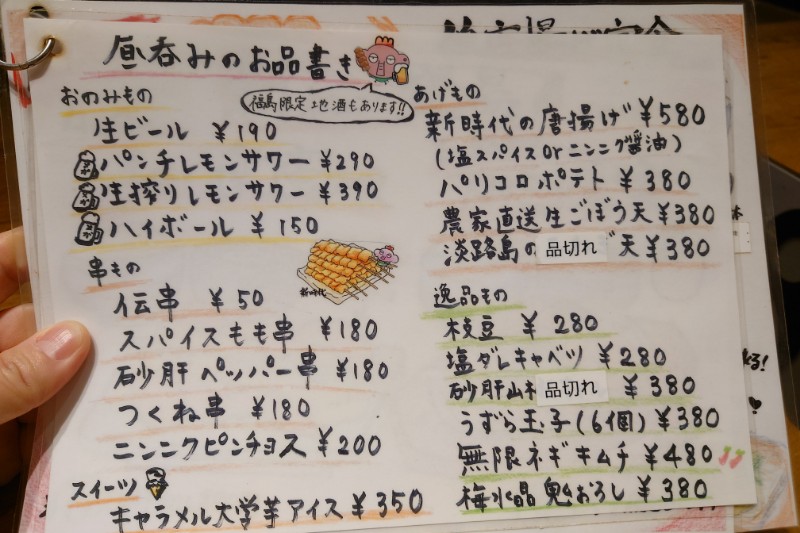 昼呑みのお品書き
福島限定地酒もあります!!
おのみもの
生ビール ¥190
パンチレモンサワー ¥290
生搾りレモンサワー ¥390
ハイボール ¥150
串もの
伝串 ¥50
スパイスもも串 ¥180
砂肝ペッパー串 ¥180
つくね串 ¥180
ニンニクピンチョス ¥200
新時代
スイーツ
キャラメル大学芋アイス ¥350
あげもの
新時代の唐揚げ ¥580
(塩スパイス or ニンニク醤油)
パリコロポテト ¥380
農家直送生ごぼう天 ¥380
淡路島の 品切れ 天 ¥380
逸品もの
枝豆 ¥280
塩ダレキャベツ ¥280
砂肝山 品切れ ¥380
うずら玉子(6個) ¥380
無限ネギキムチ ¥480
梅水晶鬼おろし ¥380